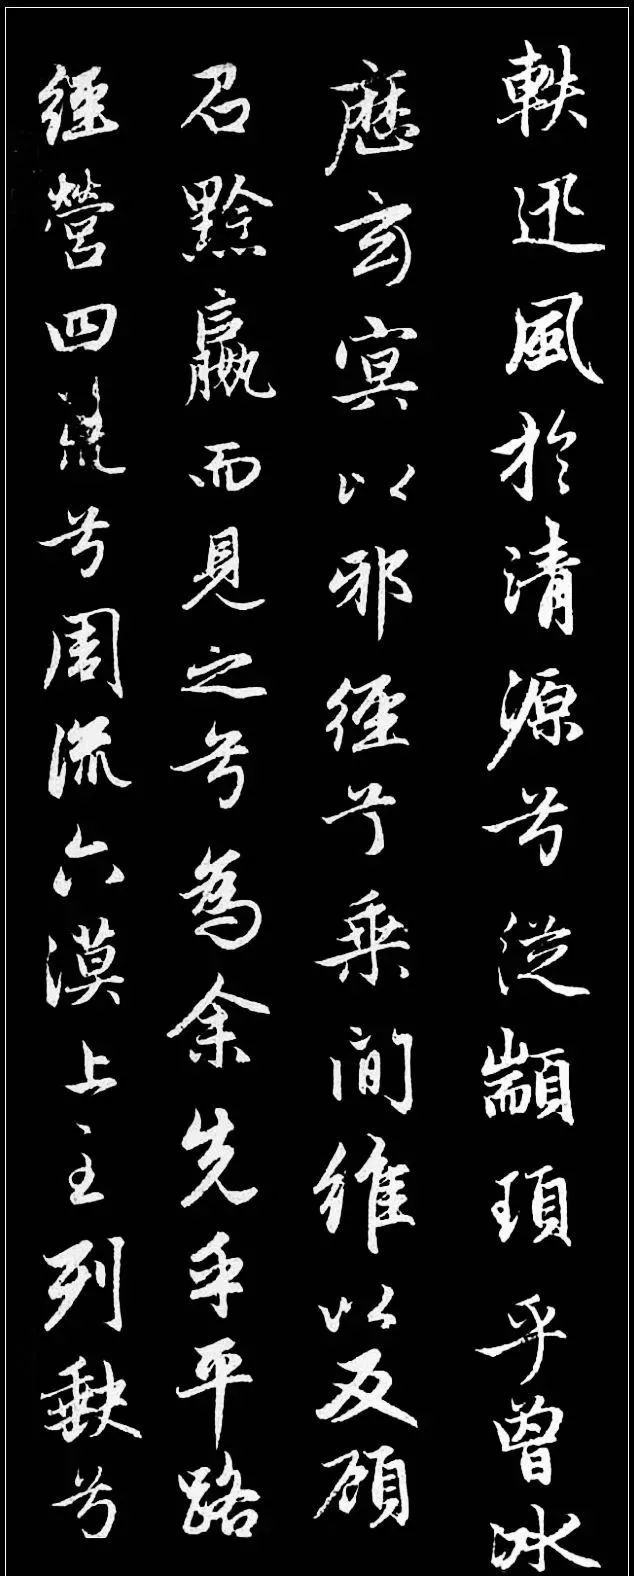 軼迅風於清源兮從顓頊乎曾冰
歷玄冥以邪徑兮乘間維以反顧
召黔嬴而見之兮為余先乎平路
經營四荒兮周流六漠上至列缺兮